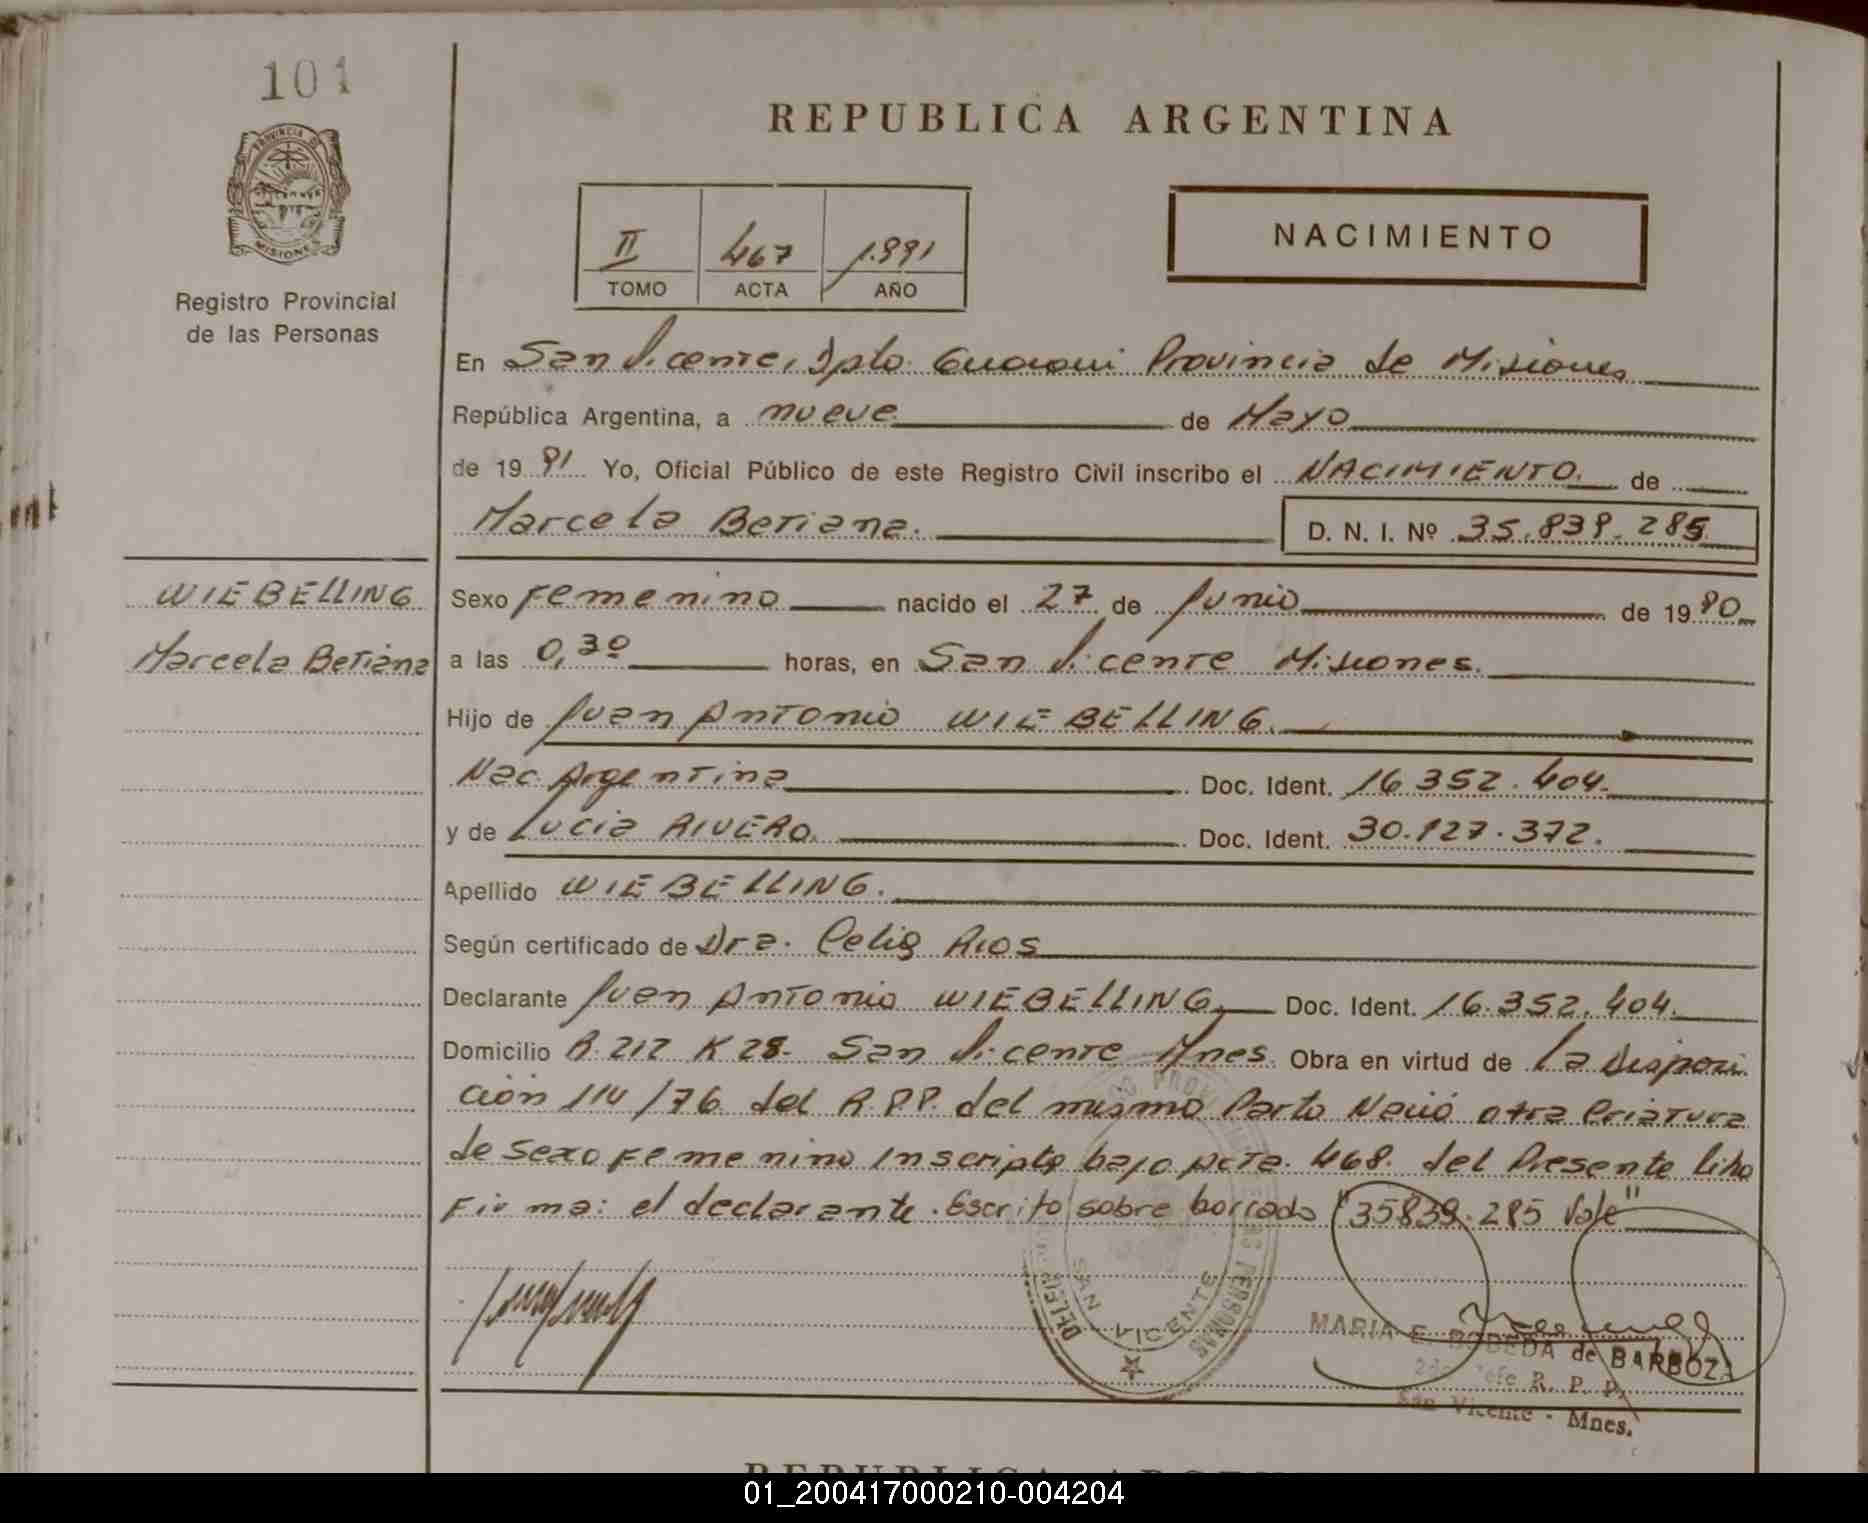 101
REPUBLICA ARGENTINA
PROVINCIA DE
MISIONES
Registro Provincial
de las Personas
II 467 1.991
TOMO ACTA AÑO
NACIMIENTO
En San Vicente, Dpto. Guarani Provincia de Misiones
República Argentina, a nueve de Mayo
de 1991 Yo, Oficial Público de este Registro Civil inscribo el NACIMIENTO. de
Marcela Betiana. D. N. I. Nº 35.839.285
WIEBELLING
Marcela Betiana
Sexo Femenino nacido el 27 de Junio de 1990
a las 0,30 horas, en San Vicente Misiones.
Hijo de Juan Antonio WIEBELLING.
Nac. Argentina Doc. Ident. 16.352.404.
y de Lucia RIVERO. Doc. Ident. 30.127.372.
Apellido WIEBELLING.
Según certificado de Dra. Celia Rios
Declarante Juan Antonio WIEBELLING, Doc. Ident. 16.352.404.
Domicilio R. 212 K 28- San Vicente Mnes. Obra en virtud de la Disposi
ción 114/76 del R.P.P. del mismo Parto Nació otra Criatura
de sexo Femenino Inscripta bajo Acta. 468. del Presente libro
Firma: el declarante. Escrito sobre borrado "35839.285 Vale"
SAN VICENTE
MARIA E. BODEDA de BARBOZA
2do Jefe R. P. P.
San Vicente - Mnes.
REPUBLICA ARGENTINA
01_200417000210-004204